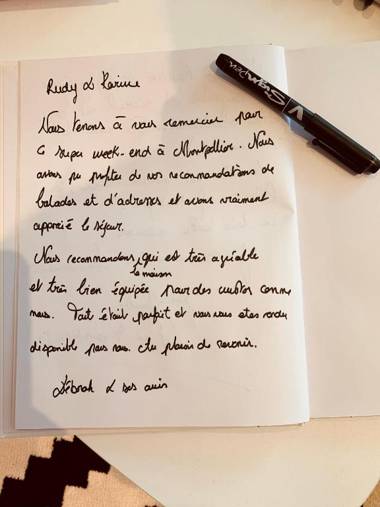 Rudy & Karine
Nous tenons à vous remercier pour
ce super week-end à Montpellier. Nous
avons pu profiter de vos recommandations de
balades et d'adresses et avons vraiment
apprécié le séjour.
Nous recommandons, qui est très agréable
la maison
et très bien équipée pour des comme
nous. Tout était parfait et vous vous etes rendu
disponible pour nous. Au plaisir de revenir.
Débrah & ses amis
V Sign Pen